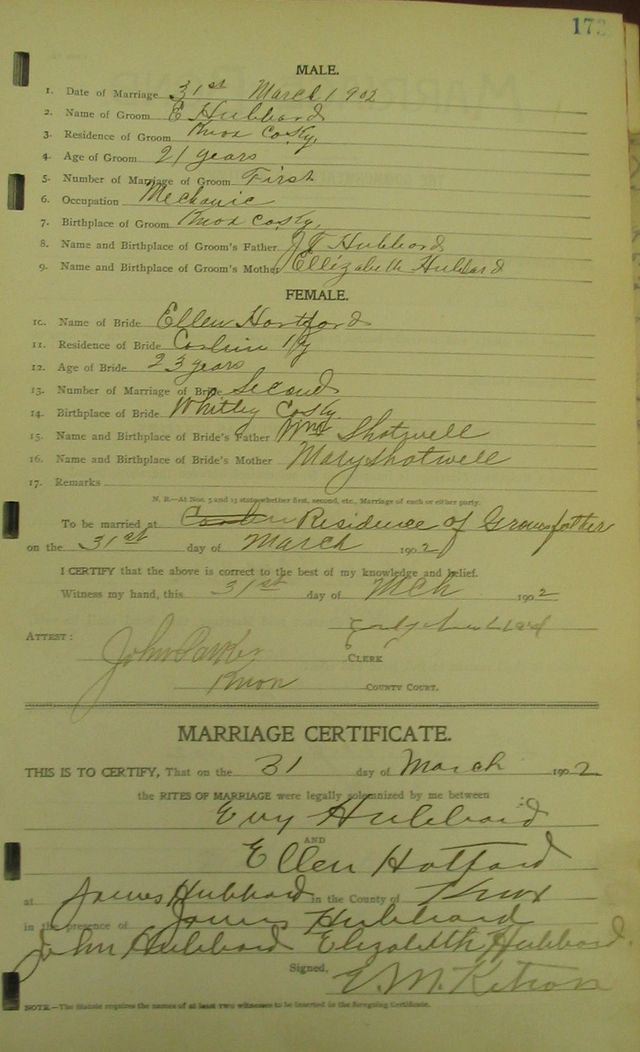 172
MALE.
1. Date of Marriage 31st March 1902
2. Name of Groom E Hubbard
3. Residence of Groom Knox Co Ky,
4. Age of Groom 21 years
5. Number of Marriage of Groom First
6. Occupation Mechanic
7. Birthplace of Groom Knox Co Ky,
8. Name and Birthplace of Groom's Father Hubbard
9. Name and Birthplace of Groom's Mother Ellizabeth Hubbard
FEMALE.
10. Name of Bride Ellen Hortford
11. Residence of Bride Ky
12. Age of Bride 23 years
13. Number of Marriage of Bride Second
14. Birthplace of Bride Whitley Co Ky.
15. Name and Birthplace of Bride's Father Wm Shotwell
16. Name and Birthplace of Bride's Mother Mary Shotwell
17. Remarks
N. B.—At Nos. 5 and 13 state whether first, second, etc., Marriage of each or either party.
To be married at Residence of Grooms father
on the 31st day of March 1902
I CERTIFY that the above is correct to the best of my knowledge and belief.
Witness my hand, this 31st day of Mch 1902
ATTEST:
John Parker CLERK
Knox COUNTY COURT.
MARRIAGE CERTIFICATE.
THIS IS TO CERTIFY, That on the 31 day of March 1902
the RITES OF MARRIAGE were legally solemnized by me between
Evy Hubbard
AND
Ellen Hottard
at James Hubbard in the County of Knox
in the presence of James Hubbard
John Hubbard Elizabeth Hubbard.
Signed, E. M. Ketron
NOTE.—The Statute requires the names of at least two witnesses to be inserted in the foregoing Certificate.